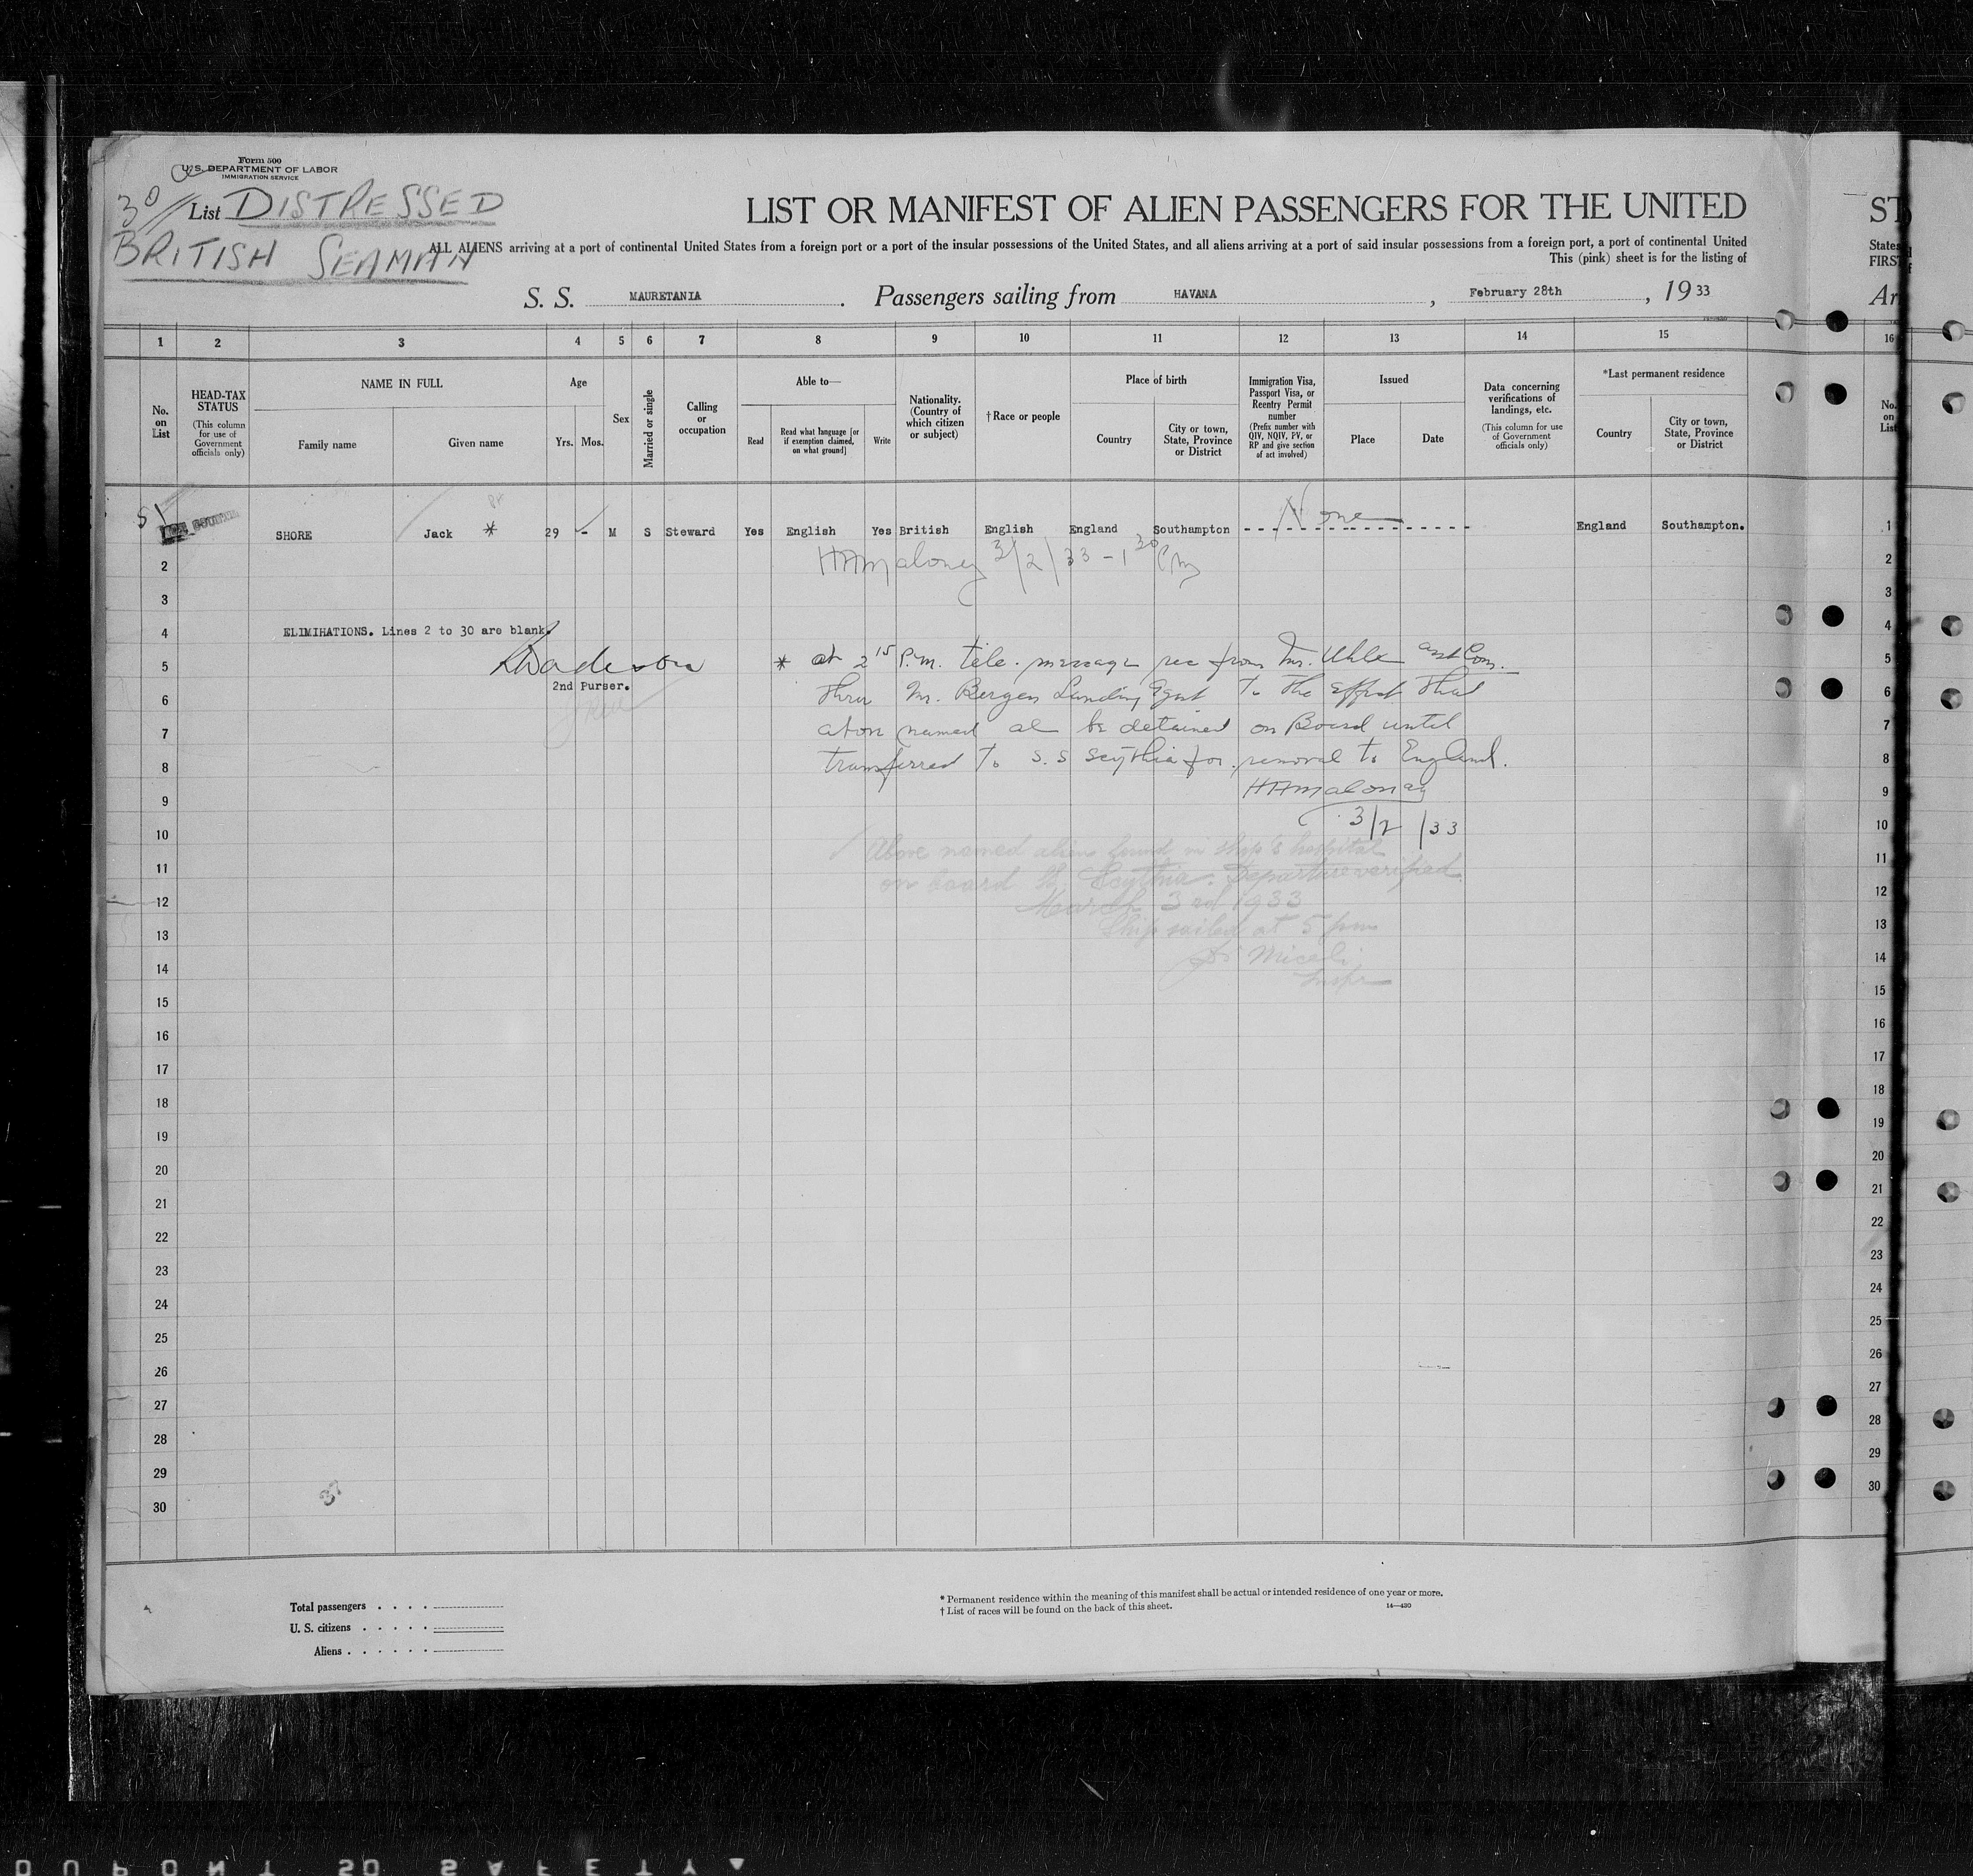 Form 500
U.S. DEPARTMENT OF LABOR
IMMIGRATION SERVICE
30
List DISTRESSED
BRITISH SEAMAN
LIST OR MANIFEST OF ALIEN PASSENGERS FOR THE UNITED
ST
ALL ALIENS arriving at a port of continental United States from a foreign port or a port of the insular possessions of the United States, and all aliens arriving at a port of said insular possessions from a foreign port, a port of continental United
States
This (pink) sheet is for the listing of
FIRST
S. S. MAURETANIA. Passengers sailing from HAVANA, February 28th, 1933
Ar
1 2 3 4 5 6 7 8 9 10 11 12 13 14 15 16
No. on List
HEAD-TAX STATUS
(This column for use of Government officials only)
NAME IN FULL
Family name
Given name
Age
Yrs. Mos.
Sex
Married or single
Calling or occupation
Able to—
Read
Read what language [or if exemption claimed, on what ground]
Write
Nationality. (Country of which citizen or subject)
†Race or people
Place of birth
Country
City or town, State, Province or District
Immigration Visa, Passport Visa, or Reentry Permit number
(Prefix number with QIV, NQIV, PV, or RP and give section of act involved)
Issued
Place
Date
Data concerning verifications of landings, etc.
(This column for use of Government officials only)
*Last permanent residence
Country
City or town, State, Province or District
No. on List
SHORE Jack * 29 - M S Steward Yes English Yes British English England Southampton None England Southampton. 1
2 HAMaloney 3/2/33 - 1 30 PM 2
3 3
4 ELIMIHATIONS. Lines 2 to 30 are blank. 4
5 * at 2 15 P.m. tele. message rec from Mr. Uhle asst Com. 5
2nd Purser.
6 thru Mr. Bergen Landing Agent to the effect that 6
7 above named al be detained on Board until 7
8 transferred to S.S Scythia for removal to England. 8
9 HAMaloney 9
10 3/2/33 10
11 Above named alien found in ship's hospital 11
12 on board SS. Scythia. Departure verified. 12
March 3rd 1933
13 Ship sailed at 5 pm 13
14 Miceli 14
Inspr
15 15
16 16
17 17
18 18
19 19
20 20
21 21
22 22
23 23
24 24
25 25
26 26
27 27
28 28
29 29
30 30
Total passengers
U. S. citizens
Aliens
* Permanent residence within the meaning of this manifest shall be actual or intended residence of one year or more.
† List of races will be found on the back of this sheet.
14—430
DUPONT SAFETY